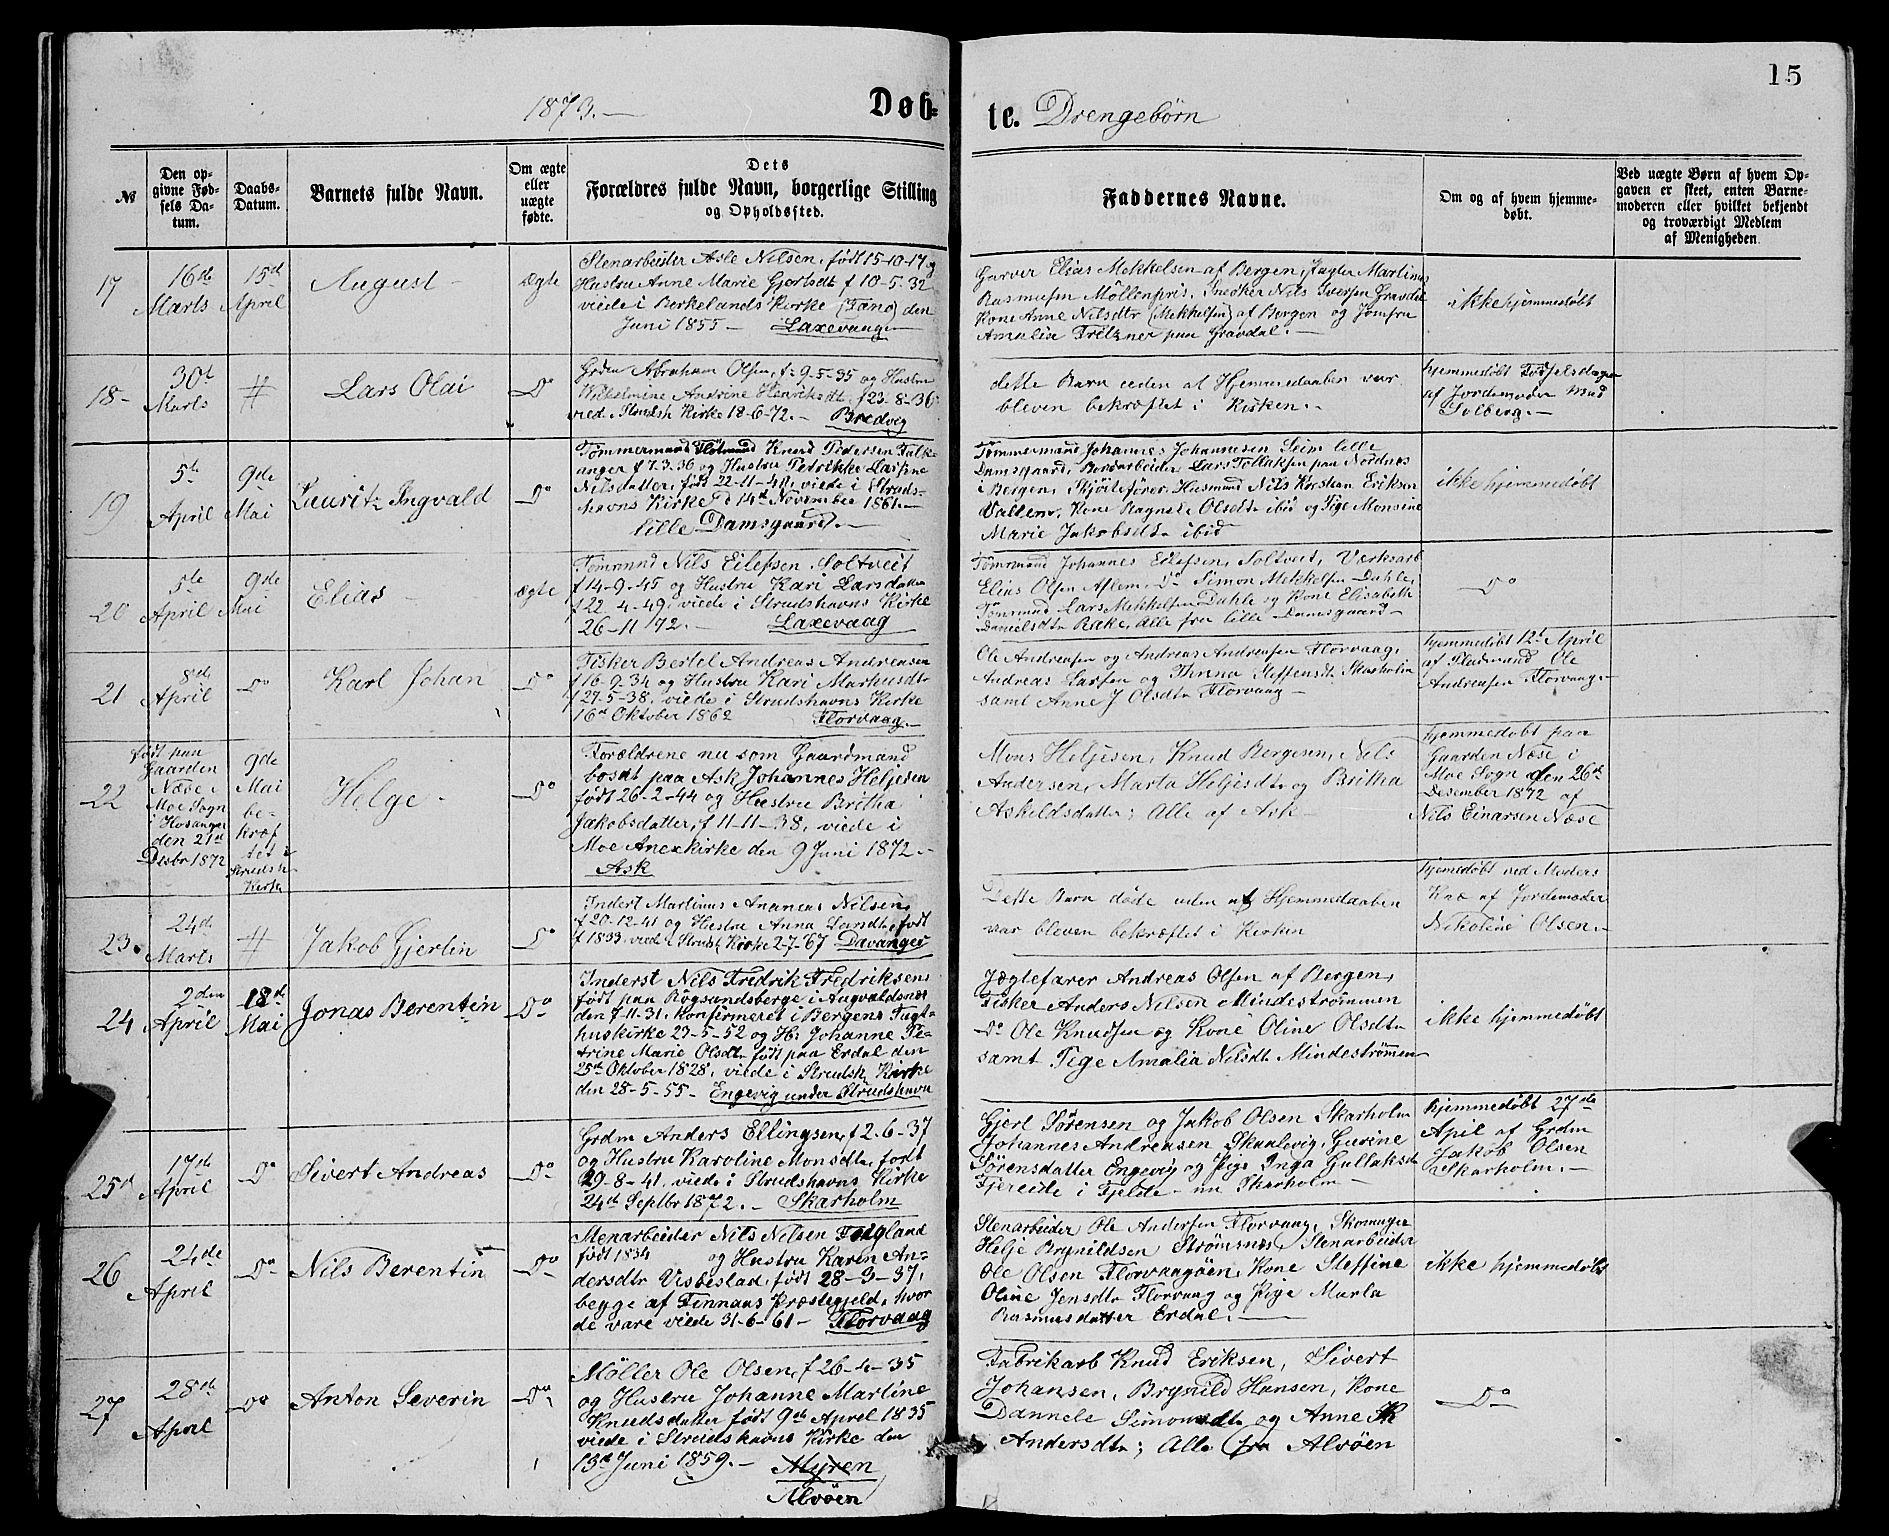 15
1873.—
Døb-
te. Drengebørn
№
Den op-
givne Fød-
sels Da-
tum.
Daabs-
Datum.
Barnets fulde Navn.
Om ægte
eller
uægte
fødte.
Dets
Forældres fulde Navn, borgerlige Stilling
og Opholdssted.
Faddernes Navne.
Om og af hvem hjemme-
døbt.
Ved uægte Børn af hvem Op-
gaven er skeet, enten Barne-
moderen eller hvilket bekjendt
og troværdigt Medlem
af Menigheden.
17
16de
Marts
15de
April
August -
Ægte
Stenarbeider Asle Nilsen, født 15-10-17 og
Hustru Anne Marie Gjertsdt f 10-5-32
viede i Berkelands Kirke (Fanø) den
Juni 1855 - Laxevaag
Garver Elias Mekkelsen af Bergen, Martinus
Rasmusen Möllenpris, Snedker Nils Iversen Gravdal
Kone Anne Nilsdtr (Mekkelsen) af Bergen og Jomfru
Amalia Fritzner paa Gravdal. -
ikke hjemmedøbt
18-
30t
Marts
#
Lars Olai
Do
Grdm Abraham Olsen, f- 9-5-35 og Hustru
Wilhelmine Andrine Henriksdt. f 23-8-36
vied i Strudsh Kirke 18-6-72. - Bredvig
dette Barn uden at Hjemmedaaben var
bleven bekræftet i Kirken. -
hjemmedøbt Fødselsdagen
af Jordemoder Mad
Solberg. -
19
5te
April
9de
Mai
Lauritz Ingvald
Do
Tømmermand Knud Pedersen Falk-
anger f 7.3.36 og Hustru Petrikke Larsine
Nilsdatter, født 22-11-41, viede i Struds-
havns Kirke d 14de November 1861. -
lille Damsgaard. -
Tømmermand Johannes Johannesen Seim lille
Damsgaard, Lars Tollaksen paa Nordnes
i Bergen, Skjøitefører, Husmand Nils Korsten Eriksen
Kone Ragne Olsdtr ibid og Pige Monsine
Marie Jakobsdtr ibid
ikke hjemmedøbt
20
5te
April
9de
Mai
Elias -
ægte
Tømrmnd Nils Eilefsen, Soltveit
f 14-9-45 og Hustru Kari Larsdatter
f 22-4-49, viede i Strudshavns Kirke
26-11-72. - Laxevaag
Tømrmand Johannes Eilefsen, Soltveit, Værksarb
Elias Olsen Do Simon Mekkelsen Dahle,
Tømrmnd Lars Mekkelsen Dahle og Kone Elisabeth
Danielsdtr Rake, Alle fra lille Damsgaard -
Do
21
8de
April
Do
Karl Johan
Do
Fisker Bertel Andreas Andreasen
f 16-9-34 og Hustru Kari Markusdtr
f 27-5-38. viede i Strudshavns Kirke
16de Oktober 1862 Florvaag -
Ole Andreasen og Andreas Andreasen Florvaag,
Andreas Larsen og Steffensdt Skarholm
samt Anne J Olsdtr Florvaag -
hjemmedøbt 12t April
af Pladsmand Ole
Andreasen Florvaag -
22
født paa
Gaarden
Næse i
Moe Sogn
i Hosanger
den 21de
Desbr 1872
9de
Mai
be-
kræf
tet i
Strudsh
Kirke
Helge -
Do
Forældrene nu som Gaardmand
bosat paa Ask Johannes Heljesen
født 26-2-44 og Hustru Britha
Jakobsdatter, f 11-11-38, viede i
Moe Anexkirke den 9 Juni 1872. -
Ask
Mons Heljesen, Knud Børgesen, Nils
Andersen, Marta Heljesdtr og Britha
Askeldsdatter; Alle af Ask -
hjemmedøbt paa
Gaarden Næse i
Moe Sogn den 26de
Desember 1872 af
Nils Einarsen Næse
23.
24de
Marts
#
Jakob Gjertin
Do
Inderst Martinus Ananias Nilsen,
f 20-12-41 og Hustru Anna født
f 1833. viede i Strudsh Kirke 2-7-67 Davanger
Dette Barn døde uden at Hjemmedaaben
var bleven bekræftet i Kirken
hjemedøbt ved Moders
Knæ af Jordemoder
Nikoline Olsen. -
24
2den
April
18de
Mai
Jonas Berentin
Do
Inderst Nils Fredrik Fredriksen,
født paa Røgsundsberge i Augvaldsnæs
den 7-11-31. konfirmeret i Bergens Tugt-
huskirke 23-5-52 og H. Johanne Pe-
trine Marie Olsdtr født paa Erdal den
25de Oktober 1828, viede i Strudsh. Kirke
den 28-5-55 - Engevig under Strudshavn
Jægtefører Andreas Olsen af Bergen,
Fisker Anders Nilsen Mindestrømmen
Do Ole Knudsen og Kone Oline Olsdtr
samt Pige Amalia Nilsdt Mindestrømmen
ikke hjemmedøbt
25d
17de
April
Do
Sivert Andreas
Do
Grdm Anders Ellingsen, f 2-6-37
og Hustru Karoline Monsdtr, født
29-8-41. viede i Strudshavns Kirke
24de Septbr 1872. - Skarholm
Gjert Sørensen og Jakob Olsen Skarholm
Johannes Andreasen Skaalevig, Gurine
Sørensdatter Engevig og Pige Inga Gullaksd
Fjereide i Fjelde - nu Skarholm -
hjemmedøbt 27de
Apil af Grdm
Jakob Olsen
Skarholm. -
26
24de
April
Do
Nils Berentin
Do
Stenarbeider Nils Nilsen Fuigland
født 1834 og Hustru Karen An-
dersdtr Visbestad, født 28-3-37,
begge af Finnaas Præstegjeld, hvor
de vare viede 31-6-61 - Florvaag
Stenarbeider Ole Andersen Florvaag, Skomager
Helje Brynildsen Strømsnes, Stenarbeider
Ole Olsen Florvaagøen, Kone Steffine
Oline Jensdtr Florvaag og Pige Marta
Rasmusdatter Erdal. -
ikke hjemmedøbt
27
28de
April
Do
Anton Severin
Do
Møller Ole Olsen, f 26-4-35
og Hustru Johanne Martine
Knudsdatter født 9de April 1835
viede i Strudshavns Kirke den
13de Juni 1859. - Myren
Alvöen
Fabrikarb Knud Eriksen, Sivert
Johansen, Brynild Hansen, Kone
Dannele Simonsdtr og Anne K
Andersdtr; Alle fra Alvöen
Do